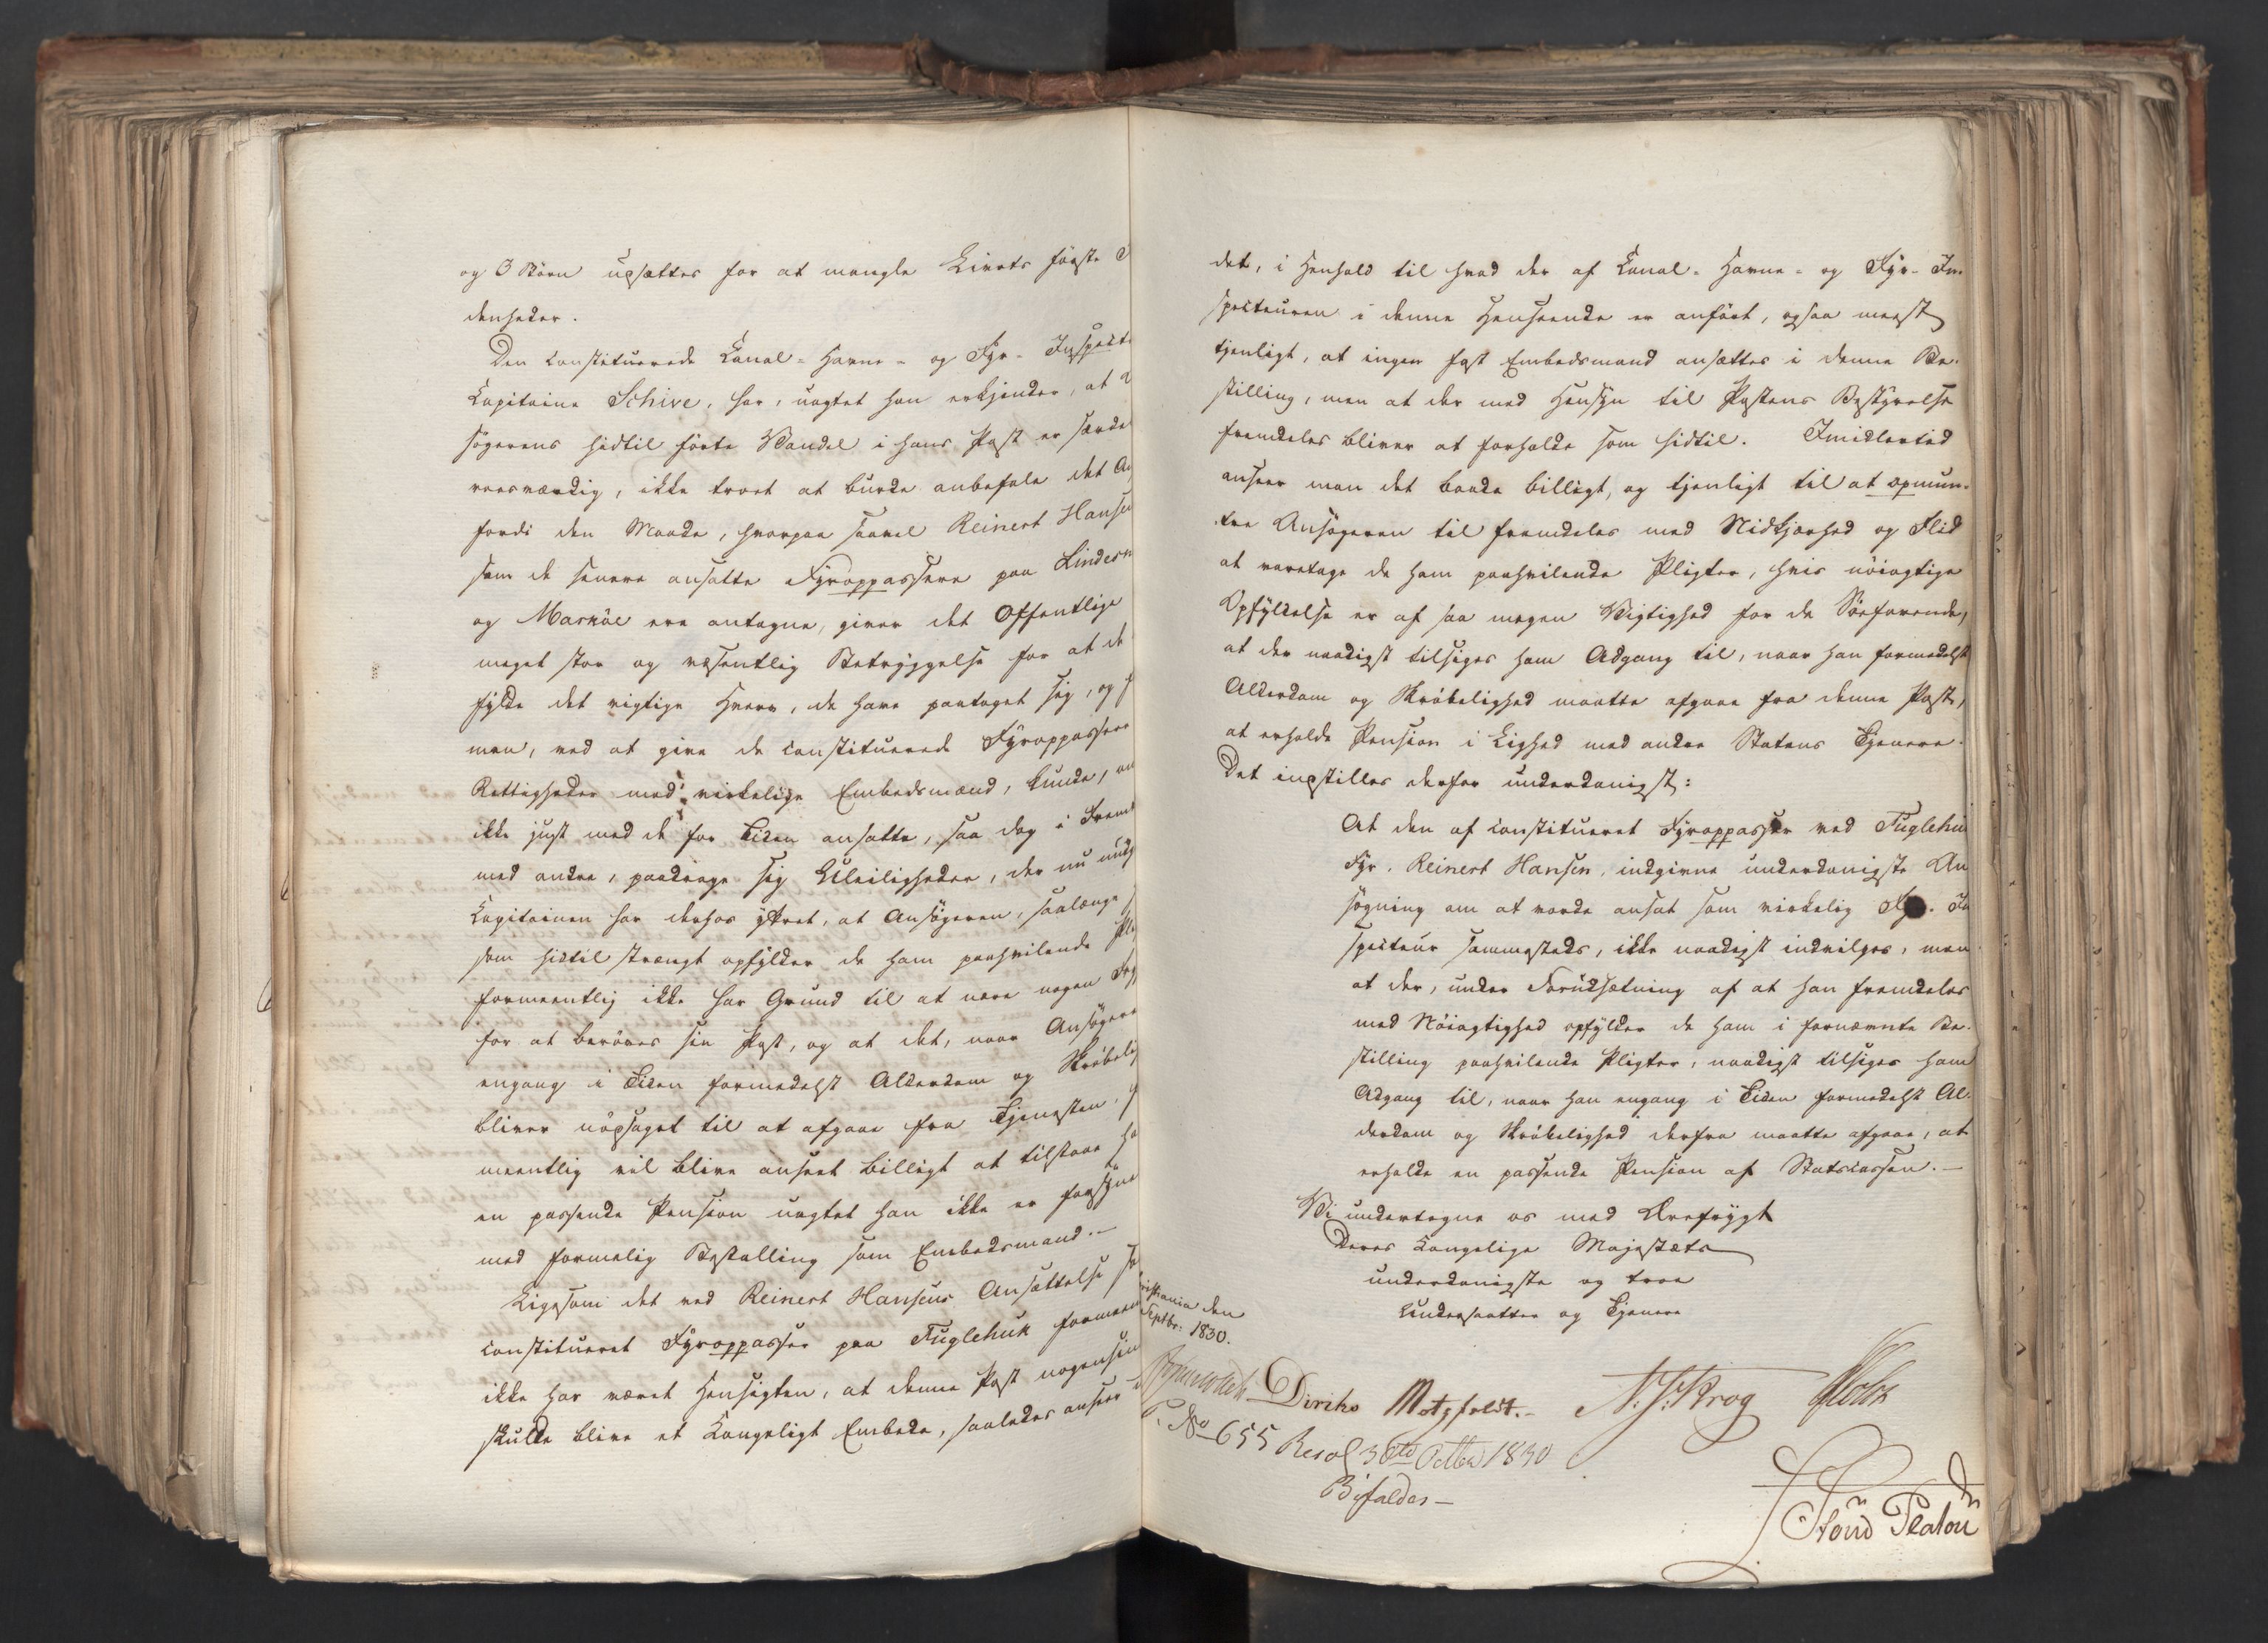 og 3 Börn udsættes for at mangle Livets förste
denheder.
Den constituerede Canal- Havne- og Fyr- Inspect
Capitaine Schive, har, uagtet han erkjender, at
sögerens hidtil förte Vandel i hans Post er særde
roesværdig, ikke troet at burde anbefale det
fordi den Maade, hvorpaa saavel Reinert Hansen
som de senere ansatte Fyroppassere paa Lindesn
og Marköe ere antagne, giver det Offentlige
meget stor og væsentlig Betryggelse for at de
fylde det vigtige Hverv, de have paataget sig, og
man, ved at give de constituerede Fyroppassere
Rettigheder med virkelige Embedsmænd, kunde, om
ikke just med de for Tiden ansatte, saa dog i Frem
med andre, paadrage sig Uleiligheder, der nu
Capitainen har derhos yttret, at Ansögeren, saalænge
som hidtil strængt opfylder de ham paahvilende
formeentlig ikke har Grund til at nære nogen
for at beröves sin Post, og at det, naar Ansögere
engang i Tiden formedelst Alderdom og Skröbelig
bliver nödsaget til at afgaae fra Tjenesten,
meentlig vil blive anseet billigt at tilstaae
en passende Pension uagtet han ikke er forsyne
med formelig Bestalling som Embedsmand.-
Ligesom det ved Reinert Hansens Ansættelse
constitueret Fyroppasser paa Fuglehuk formeen
ikke har været Hensigten, at denne Post nogensin
skulde blive et Kongeligt Embede, saaledes anseer
det, i Henhold til hvad der af Canal- Havne- og Fyr- In-
specteuren i denne Henseende er anfört, ogsaa meest
tjenligt, at ingen fast Embedsmand ansættes i denne Be-
stilling, men at der med Hensyn til Postens Bestyrelse
fremdeles bliver at forholde som hidtil. Imidlertid
anseer man det baade billigt, og tjenligt til at opmun-
tre Ansögeren til fremdeles med Nidkjærhed og Flid
at varetage de ham paahvilende Pligter, hvis nöiagtige
Opfyldelse er af saa megen Vigtighed for de Söefarende,
at der naadigst tilsiges ham Adgang til, naar han formedelst
Alderdom og Skröbelighed maatte afgaae fra denne Post,
at erholde Pension i Lighed med andre Statens Tjenere.
Det indstilles derfor underdanigst:
At den af constitueret Fyroppasser ved Fuglehu
Fyr, Reinert Hansen, indgivne underdanigste An
sögning om at vorde ansat som virkelig Fyr- In
specteur sammesteds, ikke naadigst indvilges, men
at der, under Forudsætning af at han fremdeles
med Nöiagtighed opfylder de ham i fornævnte Be-
stilling paahvilende Pligter, naadigst tilsiges ham
Adgang til, naar han engang i Tiden formedelst Al-
derdom og Skröbelighed derfra maatte afgaae, at
erholde en passende Pension af Statscassen.-
Vi undertegne os med Ærefrygt
Deres Kongelige Majestæts
underdanigste og troe
Undersaatter og Tjenere
istiania den
Septbr: 1830.
Diriks Motzfeldt.- N. J: Krog
No 655 Resol 30te Octbr 1830
Bifaldes-
Stoud Platou